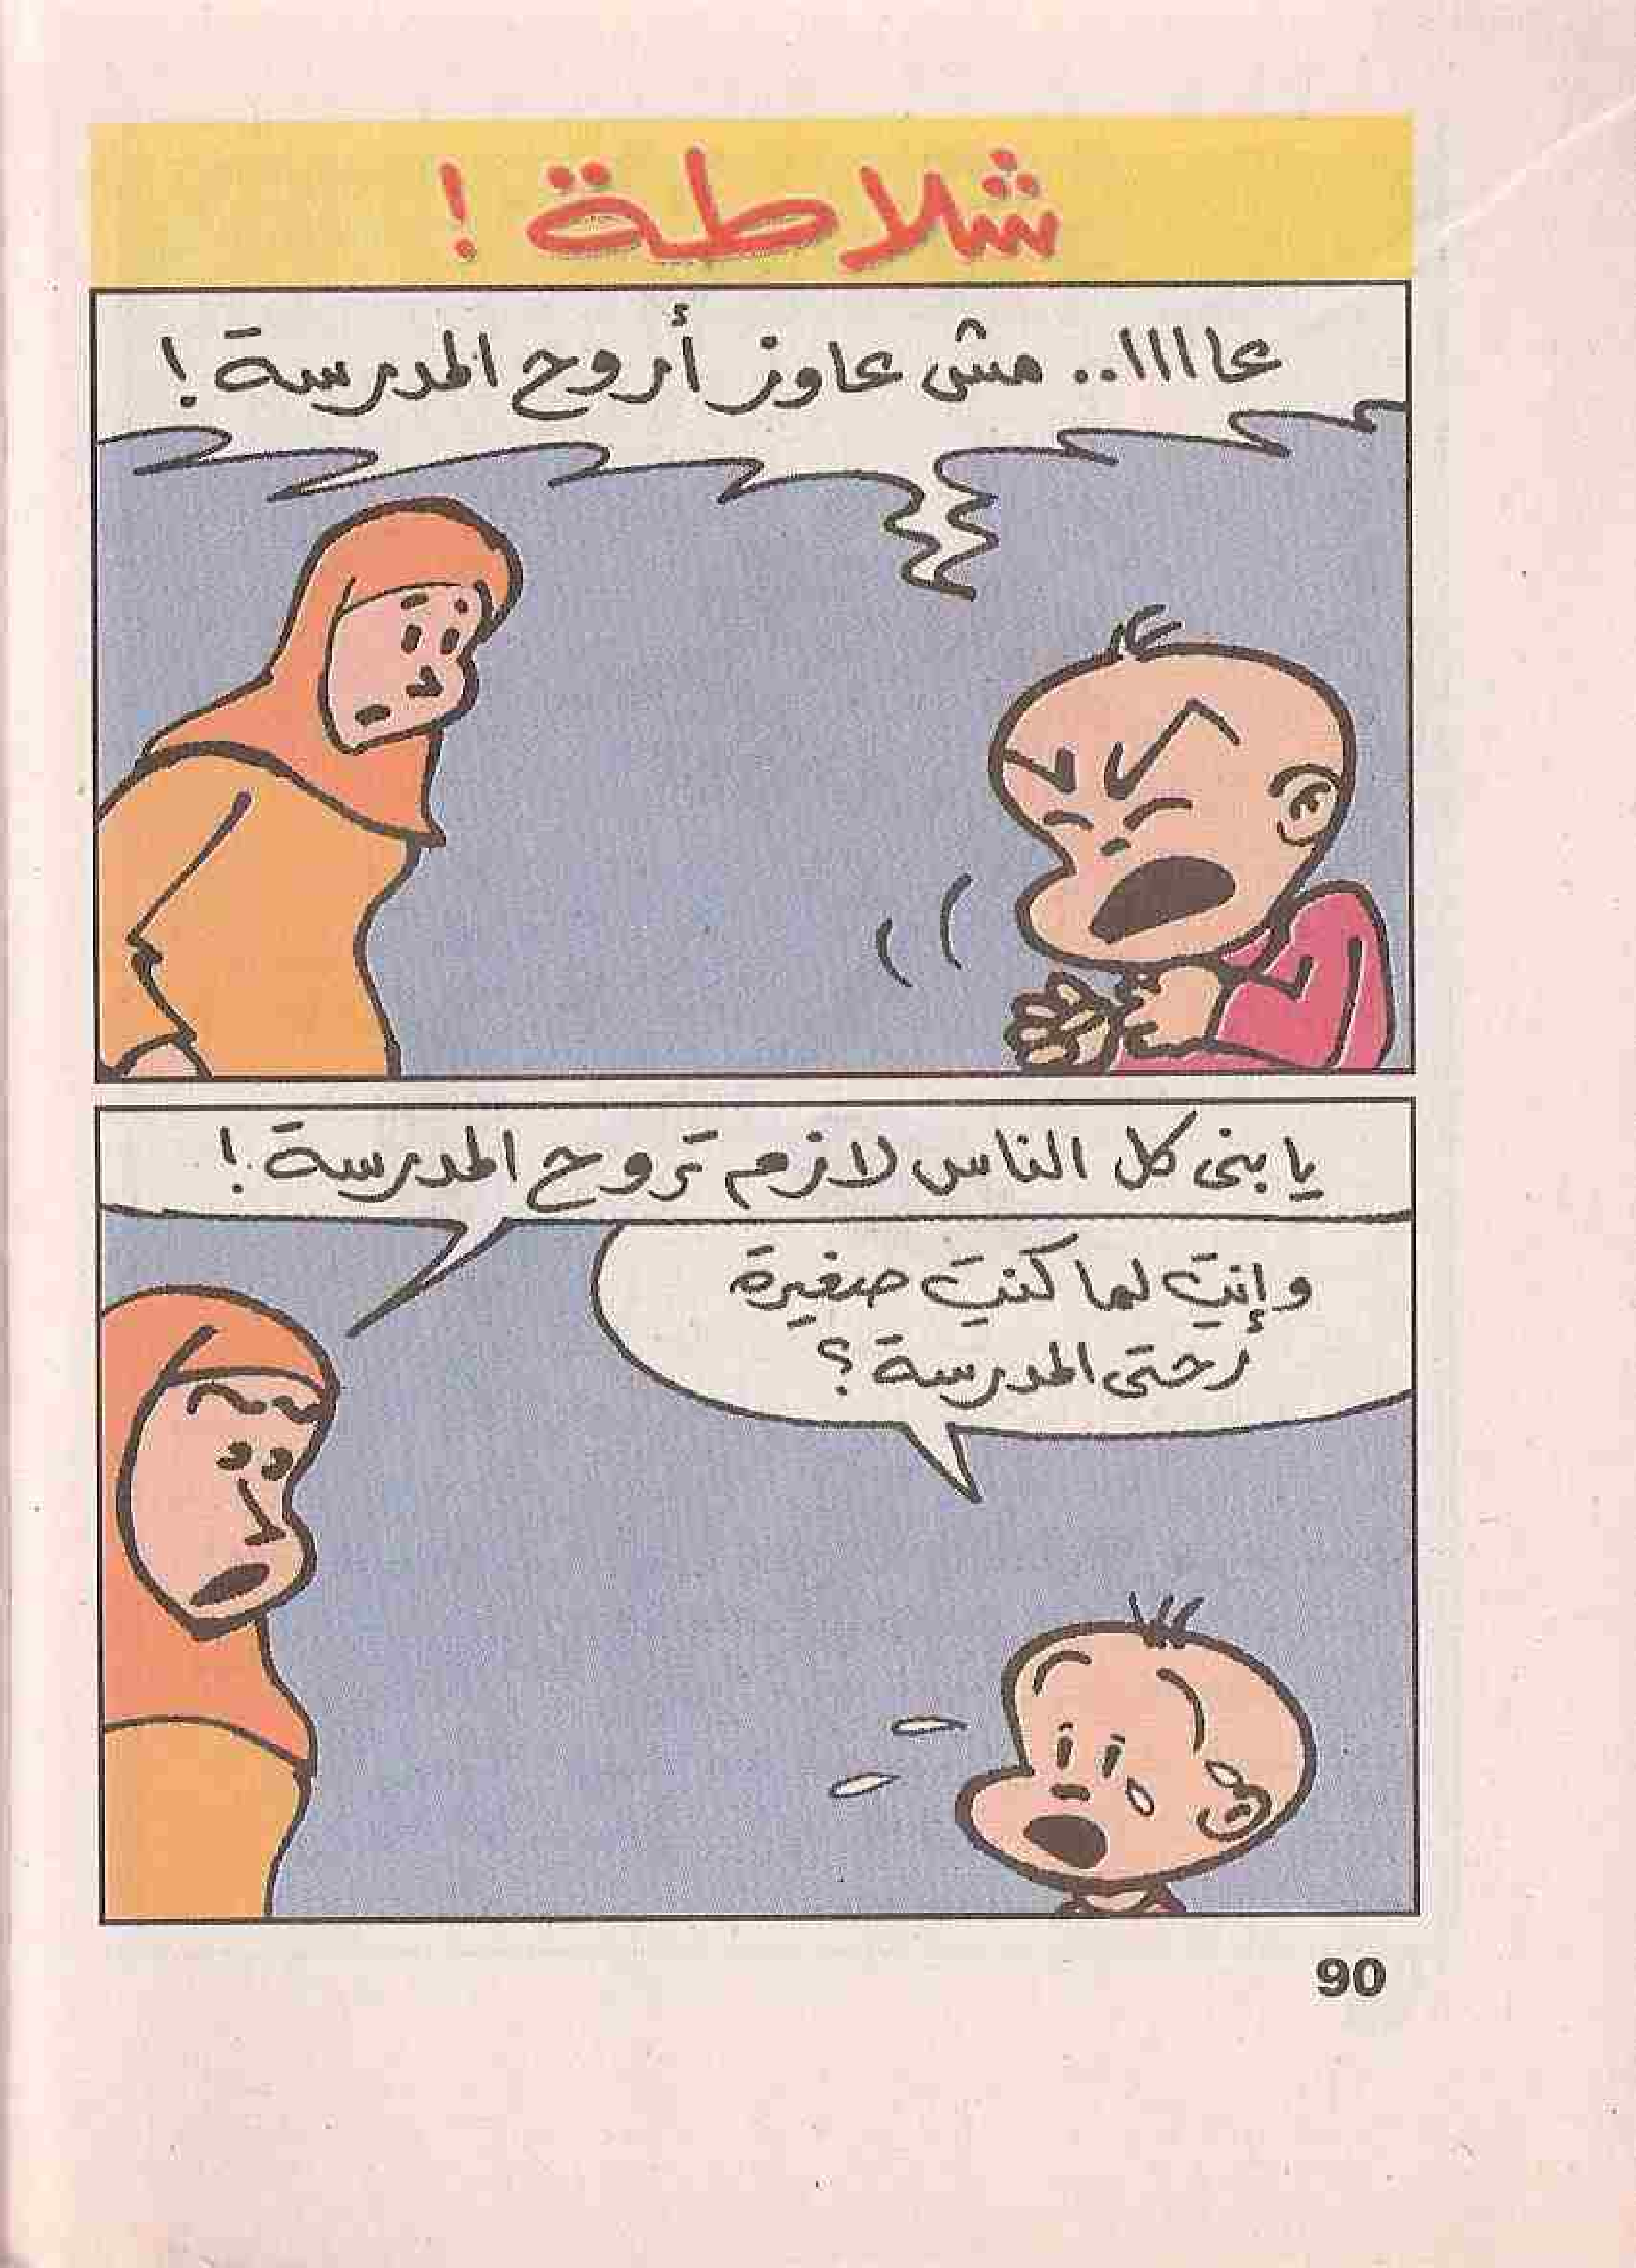 شلاطة !
عاااا.. مش عاوز أروح المدرسة !
يا بنى كل الناس لازم تروح المدرسة !
وإنتِ لما كنتِ صغيرة
رحتى المدرسة ؟
90